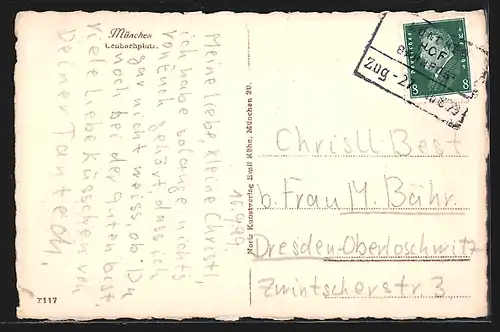 München
Lenbachplatz.
Meine liebe, kleine Christl,
ich habe solange nichts
von Euch gehört, dass ich
gar nicht weiss ob Du
noch bei der guten bist.
Viele liebe Küsschen von
Deiner Tante
T117
Noris Kunstverlag Emil Köhn, München 20.
Zug
8 8
Christl Best
b. Frau M. Bähr.
Dresden-Oberloschwitz
Zwintscherstr 3